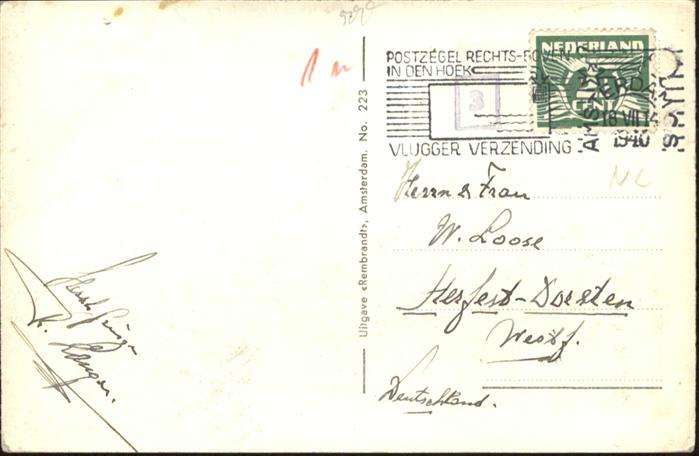 POSTZEGEL RECHTS-BOVEN
IN DEN HOEK
VLUGGER VERZENDING
NEDERLAND
CENT
AMSTERDAM
18 VII
1940
3
NL
Herrn & Frau
W. Loose
Herfest-Dorsten
Westf.
Deutschland.
Uitgave «Rembrandt», Amsterdam. No. 223
Herzl. Grüsse